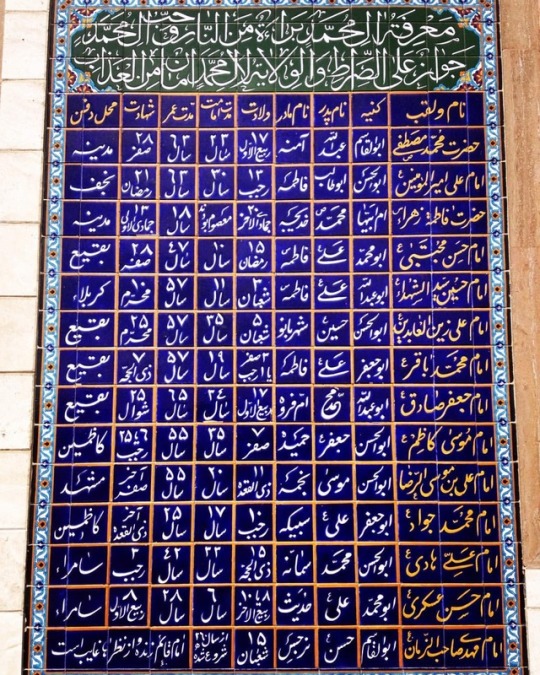 معرفة آل محمد براءة من النار و حب آل محمد
جواز علی الصراط والولایة لآل محمد امان من العذاب
نام و لقب کنیه نام پدر نام مادر ولادت مدت امامت مدت عمر شهادت محل دفن
حضرت محمد مصطفی ابوالقاسم عبدالله آمنه ۱۷ ربیع الاول ۲۳ سال ۶۳ سال ۲۸ صفر مدینه
امام علی امیرالمؤمنین ابوالحسن ابوطالب فاطمه ۱۳ رجب ۳۰ سال ۶۳ سال ۲۱ رمضان نجف
حضرت فاطمه زهرا ام ابیها محمد خدیجه ۲۰ جمادی الآخر معصوم بوده ۱۸ سال ۱۳ جمادی الاولی مدینه
امام حسن مجتبی ابومحمد علی فاطمه ۱۵ رمضان ۱۰ سال ۴۷ سال ۲۸ صفر بقیع
امام حسین سید الشهداء ابوعبدالله علی فاطمه ۳ شعبان ۱۱ سال ۵۷ سال ۱۰ محرم کربلاء
امام علی زین العابدین ابوالحسن حسین شهربانو ۵ شعبان ۳۵ سال ۵۷ سال ۲۵ محرم بقیع
امام محمد باقر ابوجعفر علی فاطمه ۳ صفر یا ۱ رجب ۱۹ سال ۵۷ سال ۷ ذی الحجه بقیع
امام جعفر صادق ابوعبدالله محمد ام فروه ۱۷ ربیع الاول ۳۴ سال ۶۵ سال ۲۵ شوال بقیع
امام موسی کاظم ابوالحسن جعفر حمیده ۷ صفر ۳۵ سال ۵۵ سال ۶ یا ۲۵ رجب کاظمین
امام علی بن موسی الرضا ابوالحسن موسی نجمه ۱۱ ذی القعده ۲۰ سال ۵۵ سال آخر صفر مشهد
امام محمد جواد ابوجعفر علی سبیکه ۱۰ رجب ۱۷ سال ۲۵ سال آخر ذی القعده کاظمین
امام علی هادی ابوالحسن محمد سمانه ۱۵ ذی الحجه ۳۳ سال ۴۲ سال ۳ رجب سامراء
امام حسن عسکری ابومحمد علی حدیث ۸ یا ۱۰ ربیع الآخر ۶ سال ۲۸ سال ۸ ربیع الاول سامراء
امام مهدی صاحب الزمان ابوالقاسم حسن نرجس ۱۵ شعبان از سال شروع شده امام قائم زنده و از نظرها غایب است